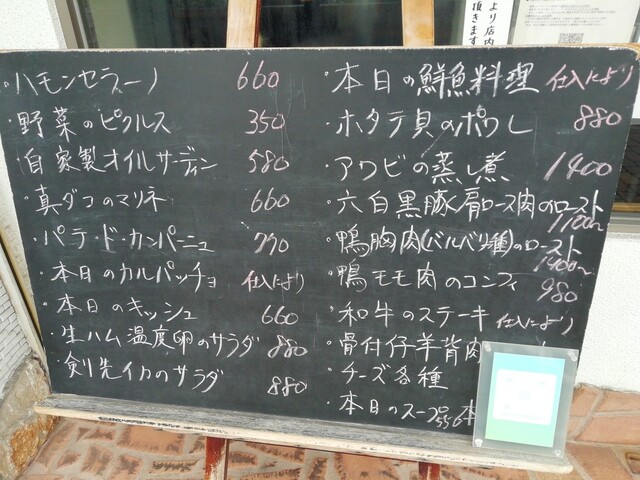 ・ハモンセラーノ 660
・野菜のピクルス 350
・自家製オイルサーディン 580
・真ダコのマリネ 660
・パテ・ド・カンパーニュ 770
・本日のカルパッチョ 仕入により
・本日のキッシュ 660
・生ハム温度卵のサラダ 880
・剣先イカのサラダ 880
・本日の鮮魚料理 仕入により
・ホタテ貝のポワレ 880
・アワビの蒸し煮 1400
・六白黒豚肩ロース肉のロースト 1100〜
・鴨胸肉(バルバリ種)のロースト 1400〜
・鴨モモ肉のコンフィ 980
・和牛のステーキ 仕入により
・骨付仔羊背肉
・チーズ各種
・本日のスープ 550
より店内
頂きます